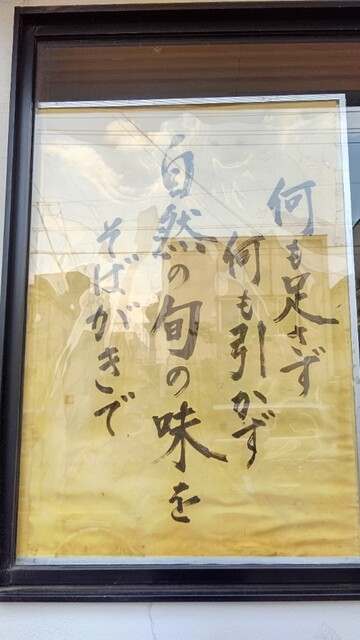 何も足さず
何も引かず
自然の旬の味を
そばがきで